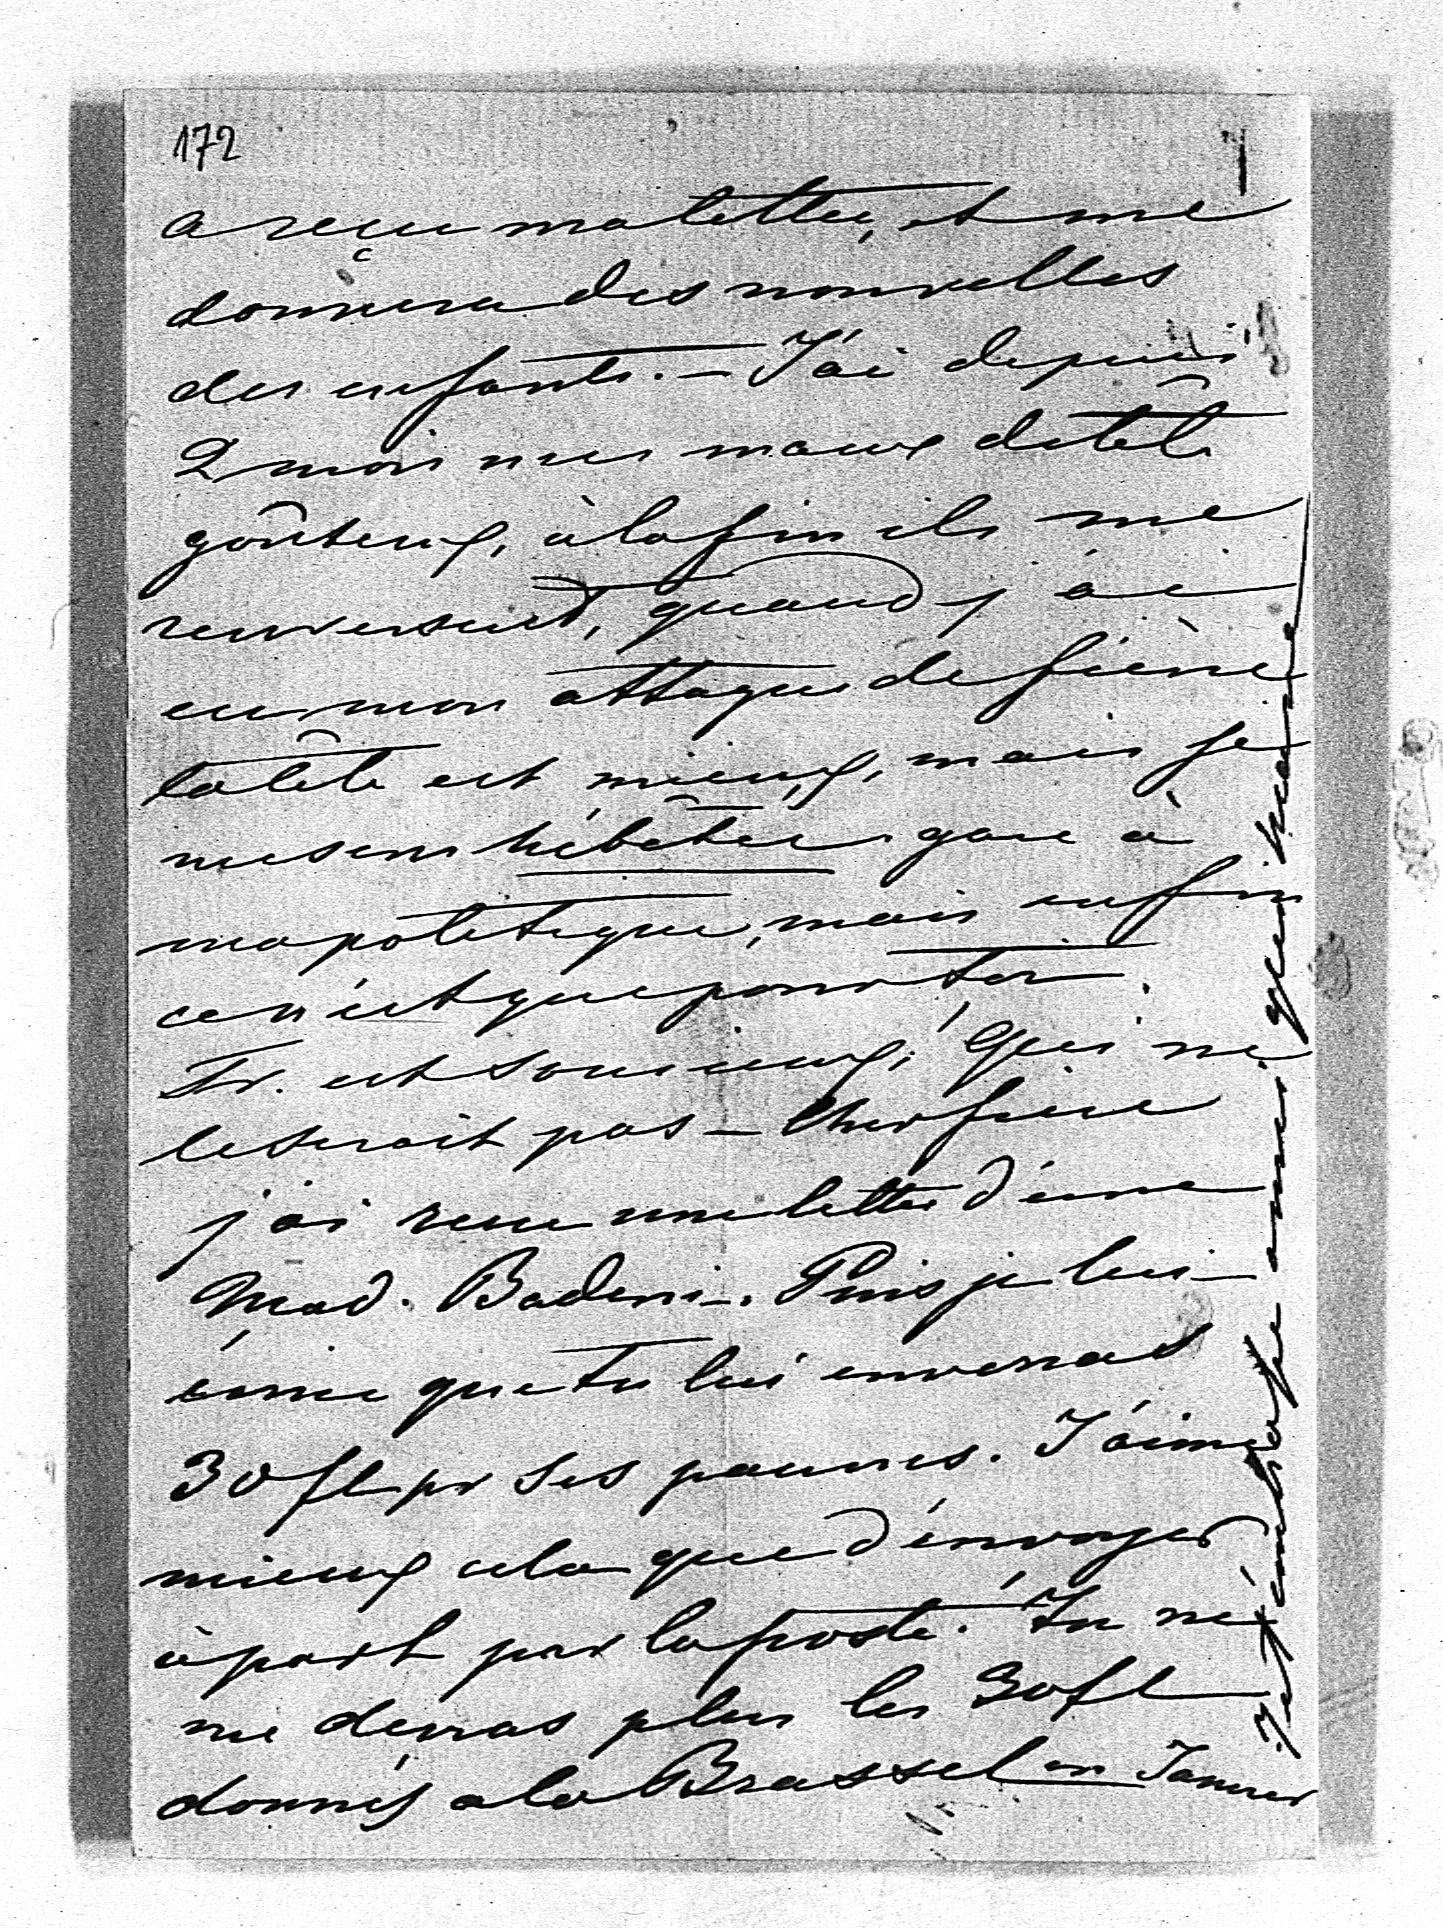 172
a reçu ma lettre, et me
donnera des nouvelles
des enfants. – J'ai depuis
2 mois mes maux de tête
goûteux, à la fin ils me
renversent, quand j'ai
eu mon attaque de fièvre
la tête est mieux, mais je
me sens hébétée gare à
ma politique, mais enfin
ce n'est que pour toi.
Fr. est soucieux, Qui ne
le serait pas – Cher frère
j'ai recu une lettre d'une
Mad. Badeni –. Puis je lui
écrire que tu lui enverras
30 fl pr ses pauvres. J'aime
mieux cela que d'envoyer
à part par la poste. Tu ne
me devras plus les 30 fl
donnés a la Brassel en Janvier
Je t'embrasse